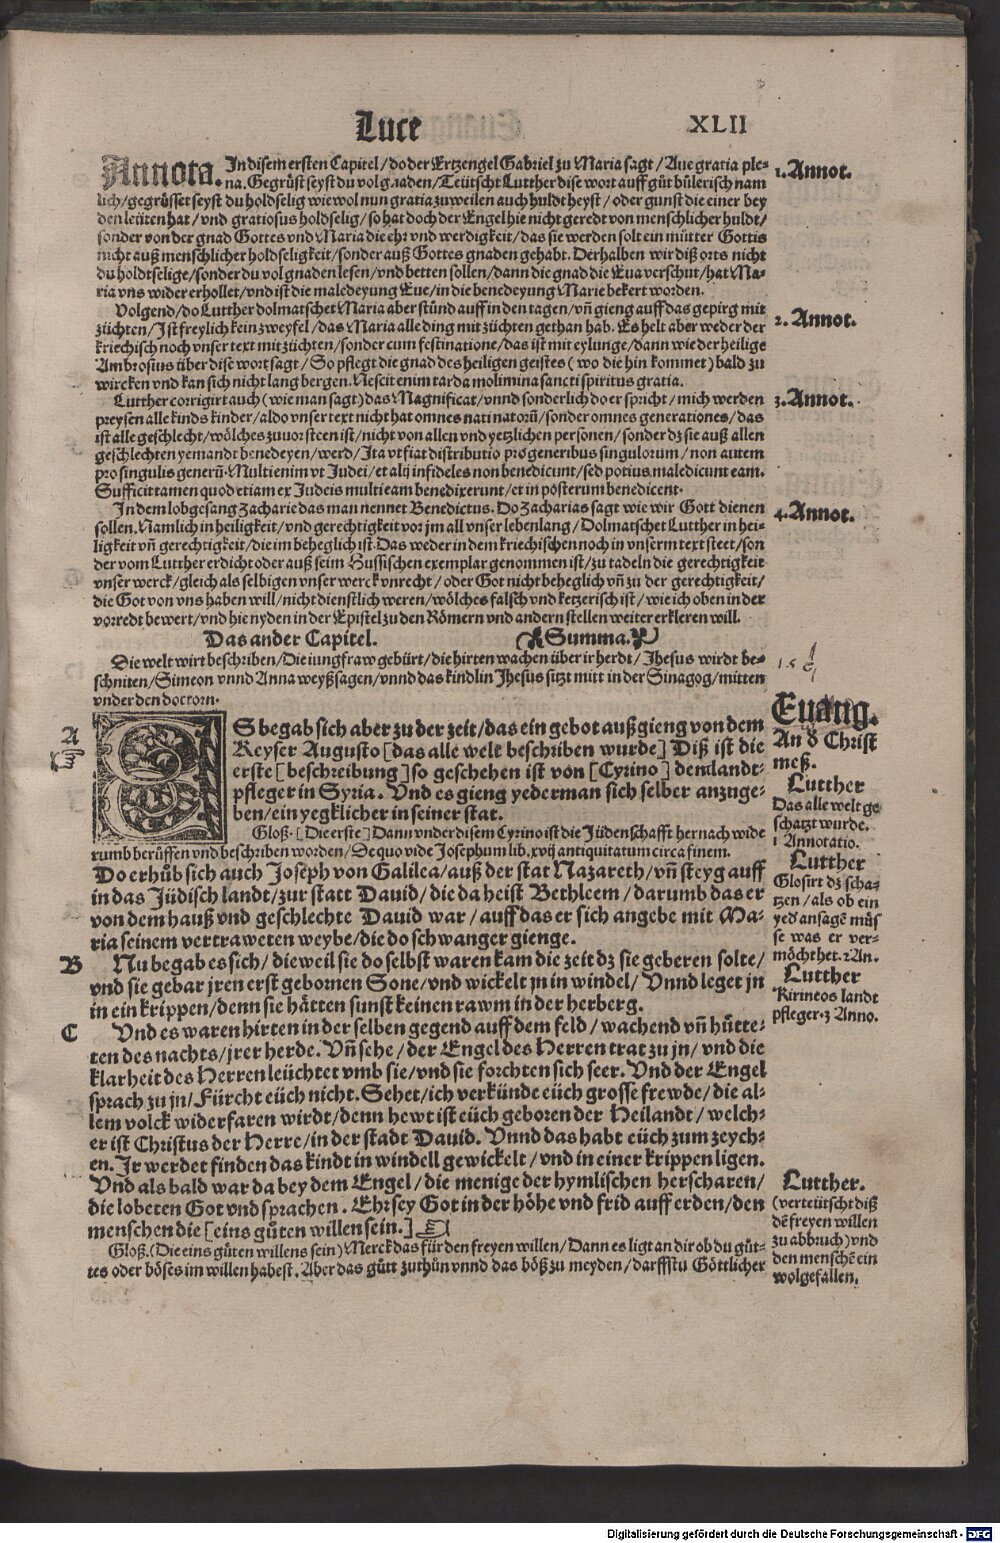 Luce
XLII
Annota. In disem ersten Capitel/do der Ertzengel Gabriel zu Maria sagt/Aue gratia ple⸗
na. Gegrüst seyst du vol gnaden/Teütscht Lutther dise wort auff gůt bůlerisch nam
lich/gegrüsset seyst du holdselig wiewol nun gratia zuweilen auch huldt heyst/oder gunst die einer bey
den leüten hat/vnd gratiosus holdselig/so hat doch der Engel hie nicht geredt von menschlicher huldt/
sonder von der gnad Gottes vnd Maria die ehr vnd werdigkeit/das sie werden solt ein můtter Gottis
nicht auß menschlicher holdseligkeit/sonder auß Gottes gnaden gehabt. Derhalben wir diß orts nicht
du holdtselige/sonder du vol gnaden lesen/vnd betten sollen/dann die gnad die Eua verschut/hat Ma⸗
ria vns wider erhollet/vnd ist die maledeyung Eue/in die benedeyung Marie bekert worden.
1. Annot.
Volgend/do Lutther dolmatschet Maria aber stůnd auff in den tagen/vn̄ gieng auff das gepirg mit
züchten/Ist freylich kein zweyfel/das Maria alle ding mit züchten gethan hab. Es helt aber weder der
kriechisch noch vnser text mit züchten/sonder cum festinatione/das ist mit eylunge/dann wie der heilige
Ambrosius über dise wort sagt/So pflegt die gnad des heiligen geistes (wo die hin kommet) bald zu
wircken vnd kan sich nicht lang bergen. Nescit enim tarda molimina sancti spiritus gratia.
2. Annot.
Lutther corrigirt auch (wie man sagt) das Magnificat/vnnd sonderlich do er spricht/mich werden
preysen alle kinds kinder/aldo vnser text nicht hat omnes nati natorū/sonder omnes generationes/das
ist alle geschlecht/wölches zuuorsteen ist/nicht von allen vnd yetzlichen personen/sonder dz sie auß allen
geschlechten yemandt benedeyen/werd/Ita vt fiat distributio pro generibus singulorum/non autem
pro singulis generū. Multi enim vt Judei/et alij infideles non benedicunt/sed potius maledicunt eam.
Sufficit tamen quod etiam ex Judeis multi eam benedixerunt/et in posterum benedicent.
3. Annot.
In dem lobgesang Zacharie das man nennet Benedictus. Do Zacharias sagt wie wir Gott dienen
sollen. Namlich in heiligkeit/vnd gerechtigkeit vor jm all vnser lebenlang/Dolmatschet Lutther in hei⸗
ligkeit vn̄ gerechtigkeit/die im beheglich ist. Das weder in dem kriechischen noch in vnserm text steet/son
der vom Lutther erdicht oder auß seim Hussischen exemplar genommen ist/zu tadeln die gerechtigkeit
vnser werck/gleich als selbigen vnser werck vnrecht/oder Got nicht beheglich vn̄ zu der gerechtigkeit/
die Got von vns haben will/nicht dienstlich weren/wölches falsch vnd ketzerisch ist/wie ich oben in der
vorredt bewert/vnd hie nyden in der Epistel zu den Römern vnd andern stellen weiter erkleren will.
4. Annot.
Das ander Capitel. Summa.
Die welt wirt beschriben/Die iungfraw gebürt/die hirten wachen über ir herdt/Jhesus wirdt be⸗
schniten/Simeon vnnd Anna weyßsagen/vnnd das kindlin Jhesus sitzt mitt in der Sinagog/mitten
vnder den doctorn.
A
ES begab sich aber zu der zeit/das ein gebot außgieng von dem
Keyser Augusto [das alle welt beschriben wurde] Diß ist die
erste [beschreibung] so geschehen ist von [Cyrino] dem landt⸗
pfleger in Syria. Vnd es gieng yederman sich selber anzuge⸗
ben/ein yegklicher in seiner stat.
Gloß. [Die erste] Dann vnder disem Cyrino ist die Jüdenschafft hernach wide
rumb berüffen vnd beschriben worden/De quo vide Josephum lib. xvij antiquitatum circa finem.
Do erhůb sich auch Joseph von Galilea/auß der stat Nazareth/vn̄ steyg auff
in das Jüdisch landt/zur statt Dauid/die da heist Bethleem/darumb das er
von dem hauß vnd geschlechte Dauid war/auff das er sich angebe mit Ma⸗
ria seinem vertraweten weybe/die do schwanger gienge.
B
Nu begab es sich/dieweil sie do selbst waren kam die zeit dz sie geberen solte/
vnd sie gebar jren erst gebornen Sone/vnd wickelt jn in windel/Vnnd leget jn
in ein krippen/denn sie hätten sunst keinen rawm in der herberg.
C
Vnd es waren hirten in der selben gegend auff dem feld/wachend vn̄ hůtte⸗
ten des nachts/jrer herde. Vn̄ sehe/der Engel des Herren trat zu jn/vnd die
klarheit des Herren leüchtet vmb sie/vnd sie forchten sich seer. Vnd der Engel
sprach zu jn/Fürcht eüch nicht. Sehet/ich verkünde eüch grosse frewde/die al⸗
lem volck widerfaren wirdt/denn hewt ist eüch geboren der Heilandt/welch⸗
er ist Christus der Herre/in der stadt Dauid. Vnnd das habt eüch zum zeych⸗
en. Ir werdet finden das kindt in windell gewickelt/vnd in einer krippen ligen.
Vnd als bald war da bey dem Engel/die menige der hymlischen herscharen/
die lobeten Got vnd sprachen. Ehr sey Got in der höhe vnd frid auff erden/den
menschen die [eins gůten willen sein.]
Gloß. (Die eins gůten willens sein) Merck das für den freyen willen/Dann es ligt an dir ob du gůt⸗
tes oder böses im willen habest. Aber das gůtt zuthůn vnnd das böß zu meyden/darffstu Göttlicher
Euang.
An d' Christ
meß.
Lutther
Das alle welt ge
schatzt wurde.
1 Annotatio.
Lutther
Glosirt dz scha⸗
tzen/als ob ein
yed' ansagē můs
se was er ver⸗
möcht het. 2 An.
Lutther
Kirineos landt
pfleger. 3 Anno.
Lutther.
(verteütscht diß
dē freyen willen
zu abbruch) vnd
den menschē ein
wolgefallen.
Digitalisierung gefördert durch die Deutsche Forschungsgemeinschaft - DFG